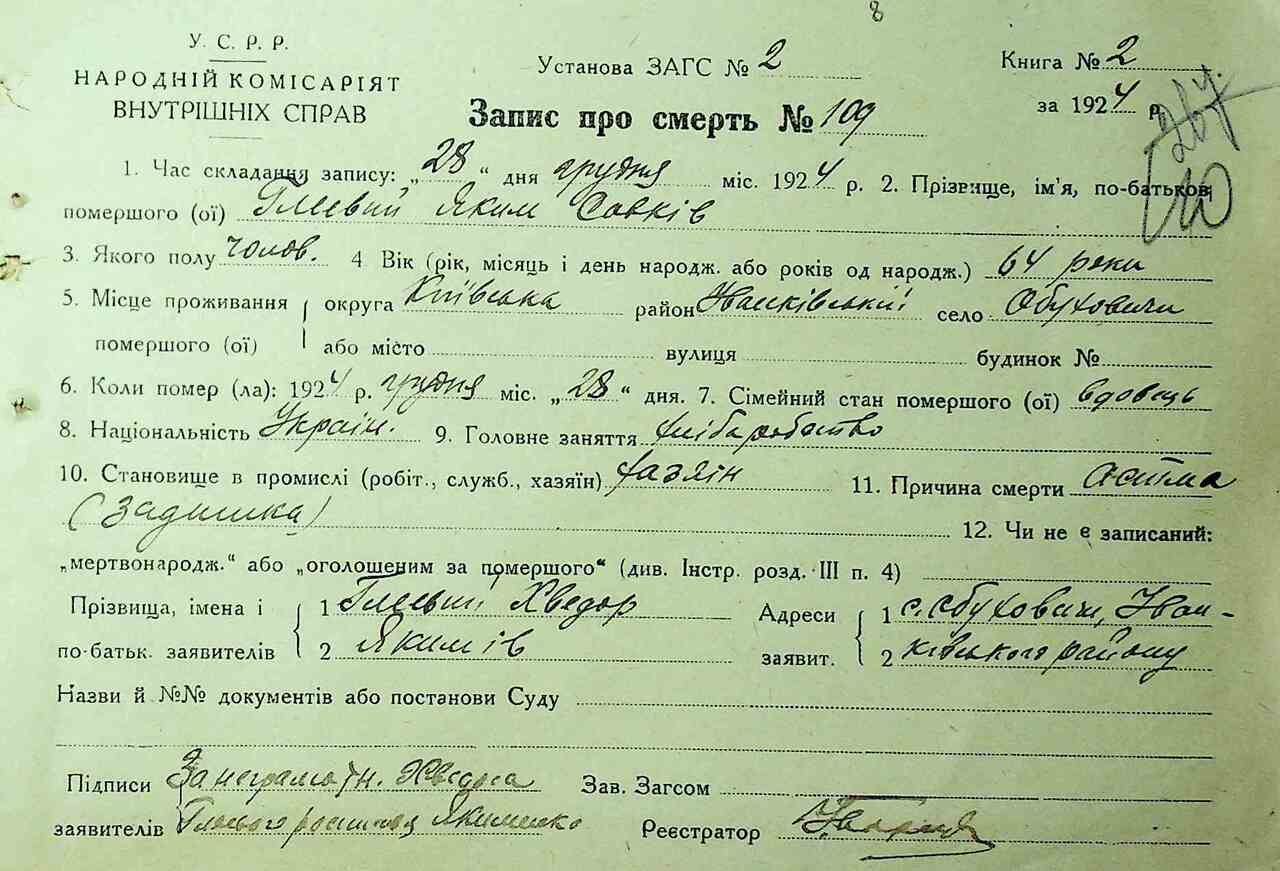 8
У. С. Р. Р.
НАРОДНІЙ КОМІСАРІЯТ
ВНУТРІШНІХ СПРАВ
Установа ЗАГС № 2
Книга № 2
за 1924 р.
Запис про смерть № 109
1. Час складання запису: „28“ дня грудня міс. 1924 р. 2. Прізвище, ім'я, по-батькові
помершого (ої) Глевий Яким Савків
3. Якого полу чолов. 4 Вік (рік, місяць і день народж. або років од народж.) 64 роки
5. Місце проживання округа Київська район Іванківський село Обуховичи
помершого (ої) або місто вулиця будинок №
6. Коли помер (ла): 1924 р. грудня міс. „28“ дня. 7. Сімейний стан помершого (ої) вдовець
8. Національність Україн. 9. Головне заняття хліборобство
10. Становище в промислі (робіт., служб., хазяїн) хазяїн 11. Причина смерти астма
(Задишка) 12. Чи не є записаний:
„мертвонародж.“ або „оголошеним за помершого“ (див. Інстр. розд. III п. 4)
Прізвища, імена і 1 Глевий Хведор Адреси 1 с. Обуховичи, Іван-
по-батьк. заявителів 2 Якимів заявит. 2 ківського району
Назви й №№ документів або постанови Суду
Підписи За неграмотн. Хведора Зав. Загсом
заявителів Глевого Якименко Реєстратор